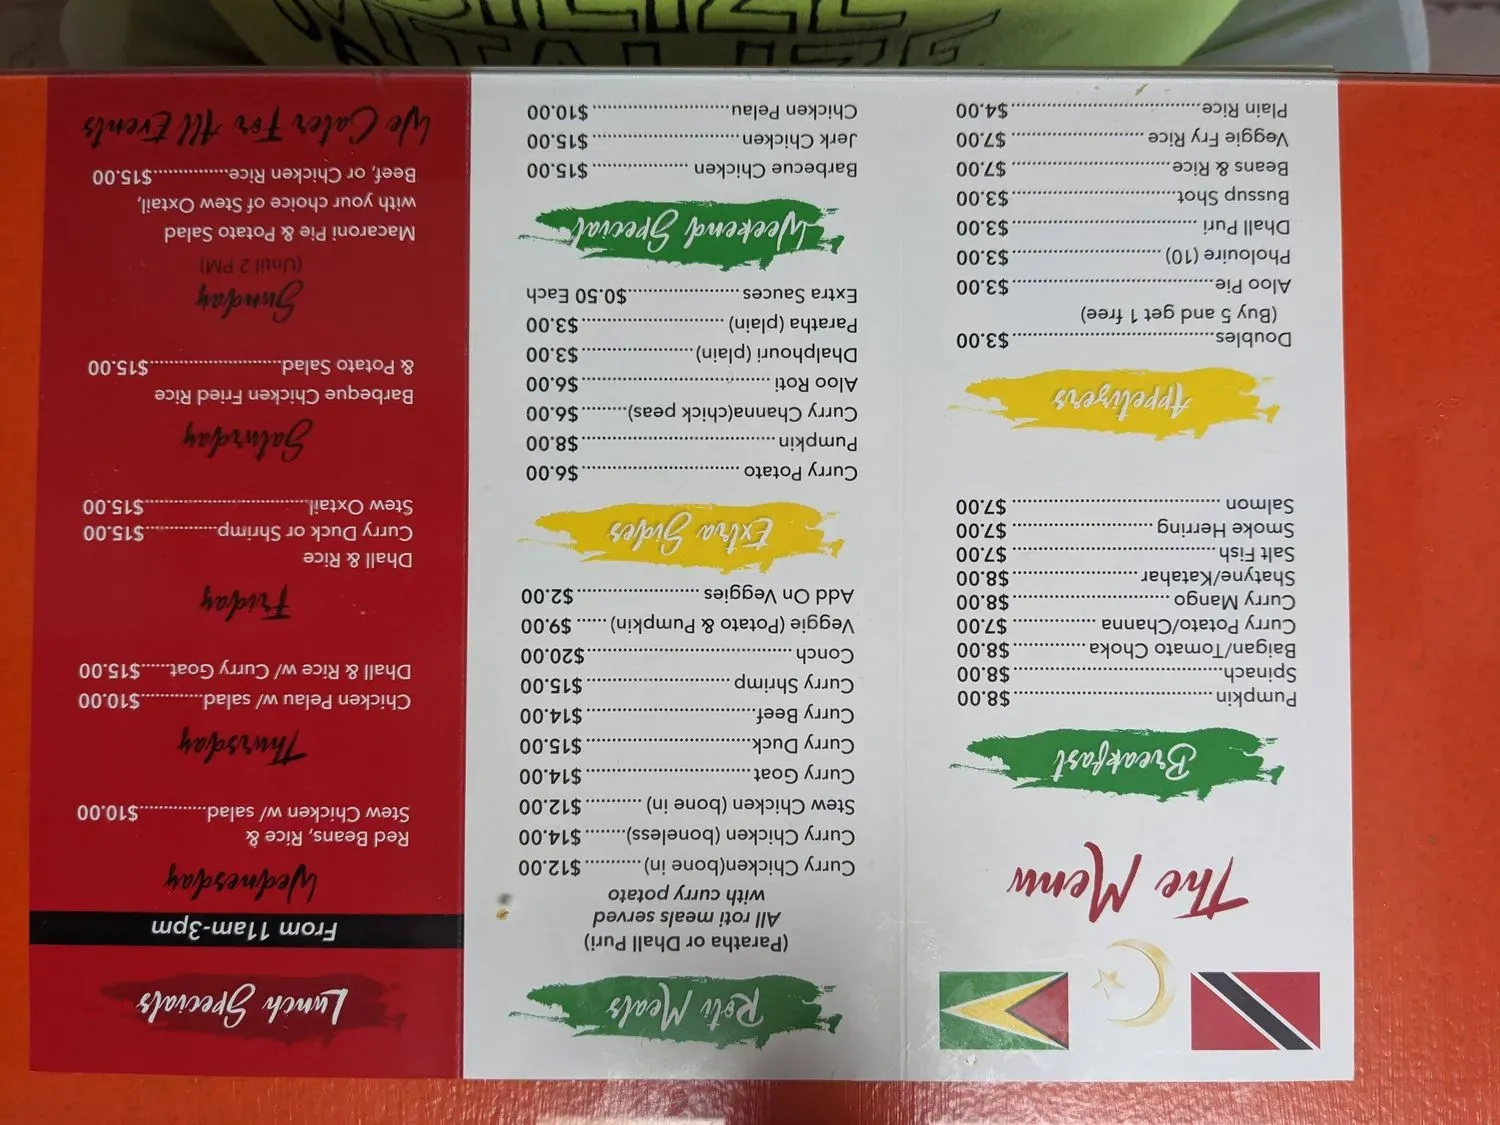 The Menu
Breakfast
Pumpkin..............................$8.00
Spinach...............................$8.00
Baigan/Tomato Choka............$8.00
Curry Potato/Channa............$7.00
Curry Mango.......................$8.00
Shatyne/Katahar..................$8.00
Salt Fish..............................$7.00
Smoke Herring.....................$7.00
Salmon...............................$7.00
Appetizers
Doubles..............................$3.00
(Buy 5 and get 1 free)
Aloo Pie..............................$3.00
Pholouire (10)......................$3.00
Dhall Puri............................$3.00
Bussup Shot........................$3.00
Beans & Rice.......................$7.00
Veggie Fry Rice....................$7.00
Plain Rice............................$4.00
Roti Meals
(Paratha or Dhall Puri)
All roti meals served
with curry potato
Curry Chicken(bone in)..........$12.00
Curry Chicken (boneless)........$14.00
Stew Chicken (bone in)..........$12.00
Curry Goat..........................$14.00
Curry Duck..........................$15.00
Curry Beef..........................$14.00
Curry Shrimp.......................$15.00
Conch................................$20.00
Veggie (Potato & Pumpkin)......$9.00
Add On Veggies....................$2.00
Extra Sides
Curry Potato........................$6.00
Pumpkin..............................$8.00
Curry Channa(chick peas).........$6.00
Aloo Roti.............................$6.00
Dhalphouri (plain)..................$3.00
Paratha (plain)......................$3.00
Extra Sauces......................$0.50 Each
Weekend Special
Barbecue Chicken..................$15.00
Jerk Chicken........................$15.00
Chicken Pelau......................$10.00
Lunch Specials
From 11am-3pm
Wednesday
Red Beans, Rice &
Stew Chicken w/ salad............$10.00
Thursday
Chicken Pelau w/ salad............$10.00
Dhall & Rice w/ Curry Goat......$15.00
Friday
Dhall & Rice
Curry Duck or Shrimp..............$15.00
Stew Oxtail..........................$15.00
Saturday
Barbeque Chicken Fried Rice
& Potato Salad.....................$15.00
Sunday
(Until 2 PM)
Macaroni Pie & Potato Salad
with your choice of Stew Oxtail,
Beef, or Chicken Rice...............$15.00
We Cater For All Events